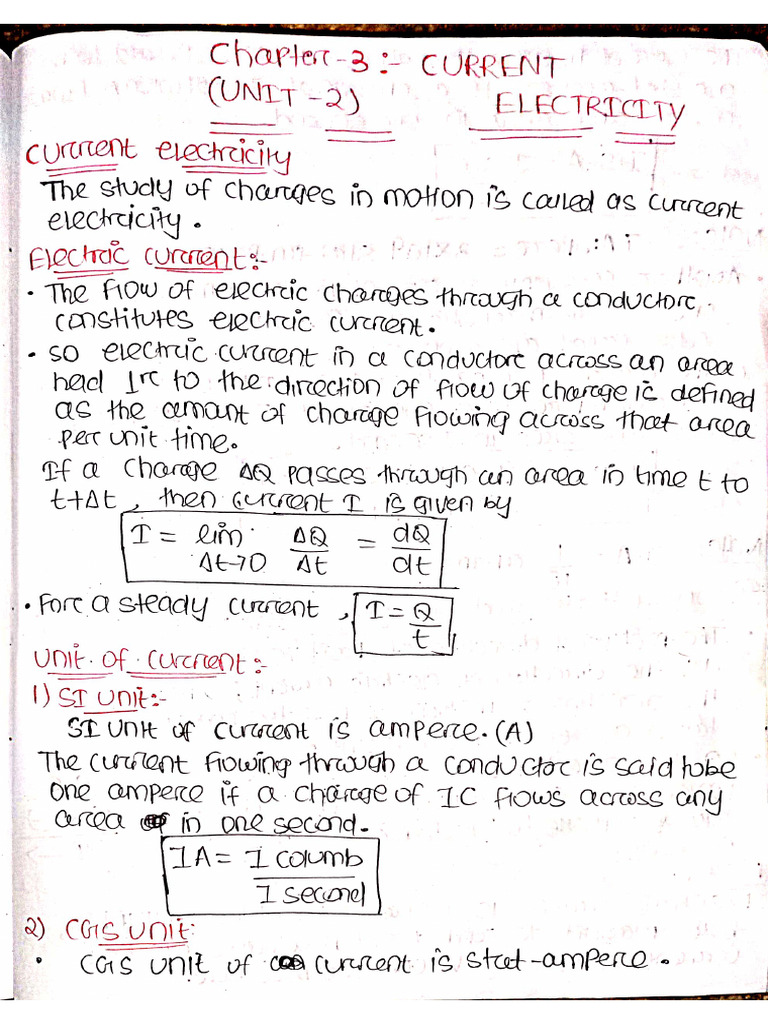 Chapter-3:- CURRENT
(UNIT-2) ELECTRICITY
Current electricity
The study of charges in motion is called as current
electricity.
Electric current:-
• The flow of electric charges through a conductor
constitutes electric current.
• so electric current in a conductor across an area
held Ir to the direction of flow of charge is defined
as the amant of charge flowing across that area
per unit time.
If a charge ΔQ passes through an area in time t to
t+Δt, then current I is given by
I = lim ΔQ = dQ
Δt→0 Δt dt
• For a steady current, I = Q
t
Unit of current:-
1) SI unit:-
SI unit of current is ampere. (A)
The current flowing through a conductor is said to be
one ampere if a charge of 1C flows across any
area in one second.
1A = 1 columb
1 second
2) CGS unit:
• CGS unit of current is stat-ampere.